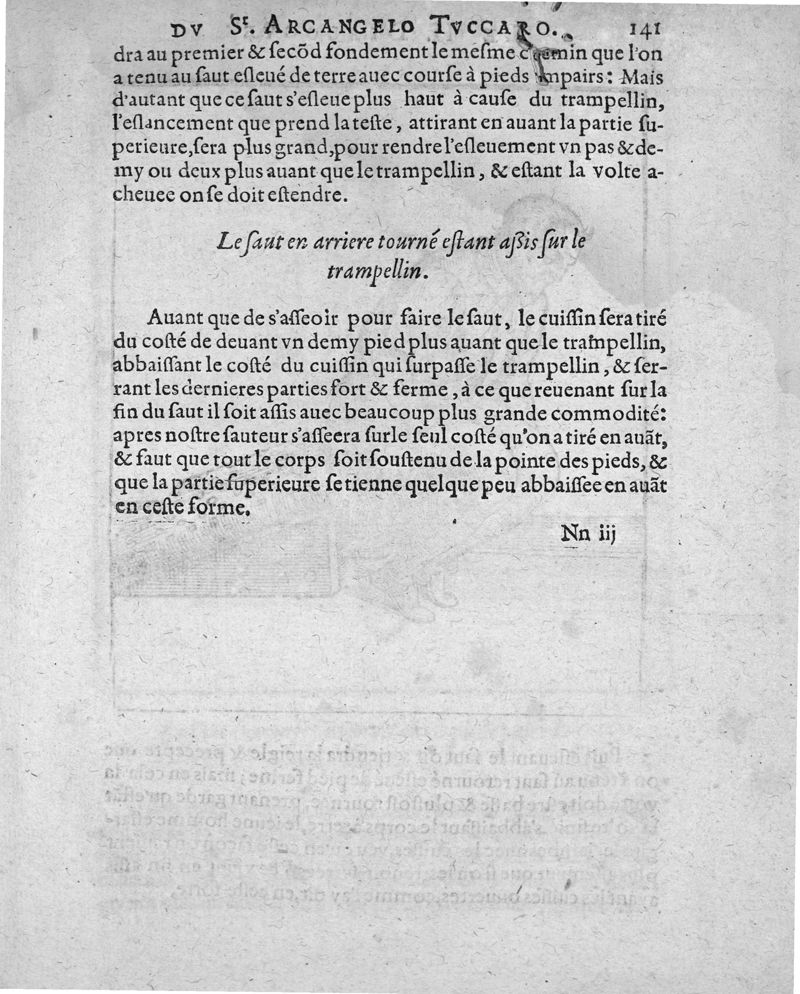 DV Sᵗ. ARCANGELO TVCCARO. 141
dra au premier & ſecõd fondement le meſme chemin que l'on
a tenu au ſaut eſleué de terre auec courſe à pieds impairs: Mais
d'autant que ce ſaut s'eſleue plus haut à cauſe du trampellin,
l'eſlancement que prend la teſte, attirant en auant la partie ſu-
perieure, ſera plus grand, pour rendre l'eſleuement vn pas & de-
my ou deux plus auant que le trampellin, & eſtant la volte a-
cheuee on ſe doit eſtendre.
Le ſaut en arriere tourné eſtant aſsis ſur le
trampellin.
Auant que de s'aſſeoir pour faire le ſaut, le cuiſſin ſera tiré
du coſté de deuant vn demy pied plus auant que le trampellin,
abbaiſſant le coſté du cuiſſin qui ſurpaſſe le trampellin, & ſer-
rant les dernieres parties fort & ferme, à ce que reuenant ſur la
fin du ſaut il ſoit aſſis auec beaucoup plus grande commodité:
apres noſtre ſauteur s'aſſeera ſur le ſeul coſté qu'on a tiré en auãt,
& faut que tout le corps ſoit ſouſtenu de la pointe des pieds, &
que la partie ſuperieure ſe tienne quelque peu abbaiſſee en auãt
en ceſte forme.
Nn iij